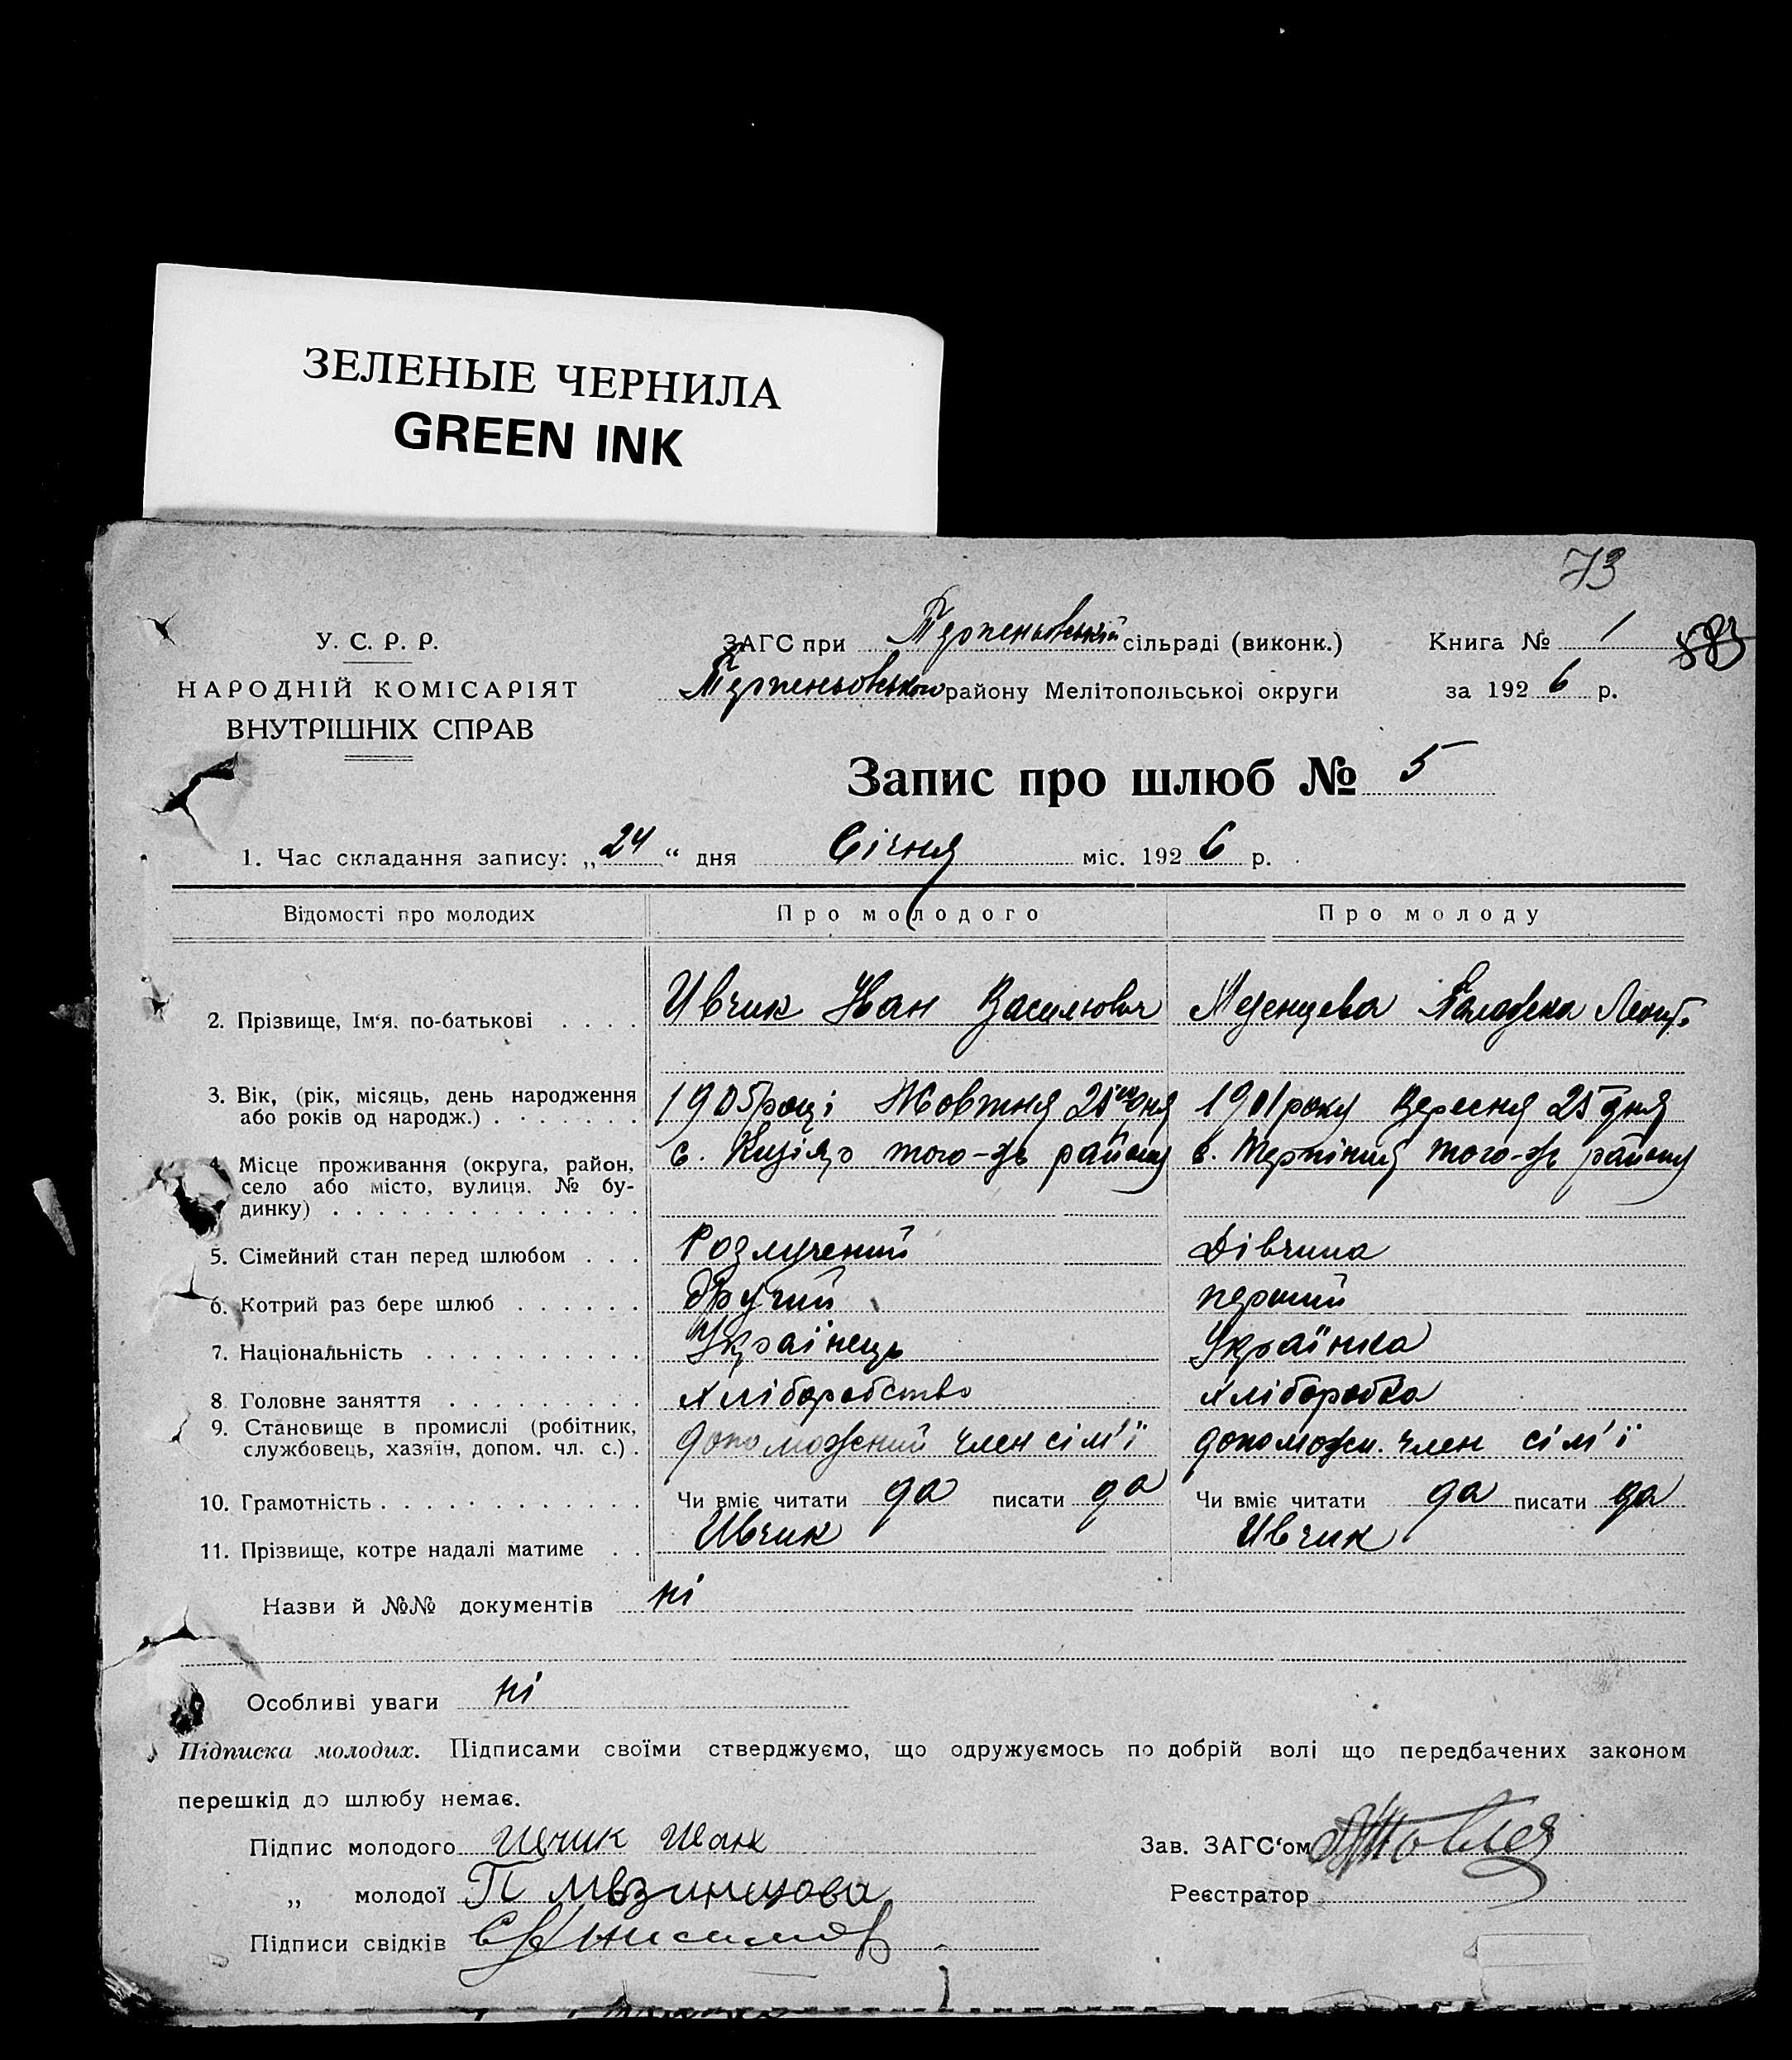 ЗЕЛЕНЫЕ ЧЕРНИЛА
GREEN INK
73
У. С. Р. Р.
НАРОДНІЙ КОМІСАРІЯТ
ВНУТРІШНІХ СПРАВ
ЗАГС при Терпеньовській сільраді (виконк.) Книга № 1
Терпеньовського району Мелітопольської округи за 1926 р.
Запис про шлюб № 5
1. Час складання запису: „24“ дня Січня міс. 1926 р.
Відомості про молодих Про молодого Про молоду
2. Прізвище, Ім'я, по-батькові . . . . Ивчик Иван Василювич Мезенцева Палажка Леонт.
3. Вік, (рік, місяць, день народження 1905 році Жовтня 25го дня 1901 року Вересня 25 дня
або років од народж.) . . . . . . .
4. Місце проживання (округа, район, с. того-ж району с. Терпіння того-ж району
село або місто, вулиця, № бу-
динку) . . . . . . . . . . . . . .
5. Сімейний стан перед шлюбом . . . Розлучений Дівчина
6. Котрий раз бере шлюб . . . . . . Другий перший
7. Національність . . . . . . . . . . Українець Українка
8 Головне заняття . . . . . . . . . хліборобство хліборобка
9. Становище в промислі (робітник, допоможений член сім'ї допоможн. член сім'ї
службовець, хазяїн, допом. чл. с.) .
10. Грамотність . . . . . . . . . . . . Чи вміє читати да писати да Чи вміє читати да писати да
11. Прізвище, котре надалі матиме . . Ивчик Ивчик
Назви й №№ документів ні
Особливі уваги ні
Підписка молодих. Підписами своїми стверджуємо, що одружуємось по добрій волі що передбачених законом
перешкід до шлюбу немає.
Підпис молодого Ивчик Иван Зав. ЗАГС'ом
„ молодої П Мезинцова Реєстратор
Підписи свідків